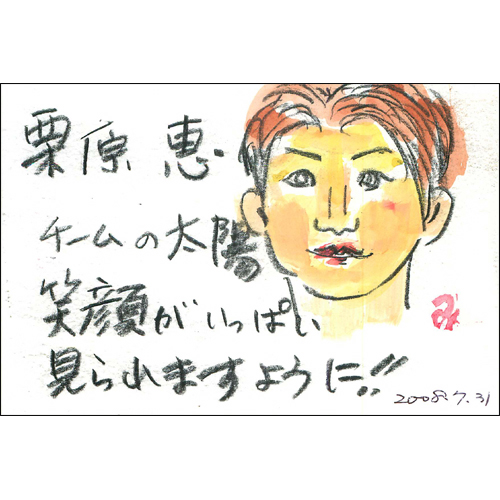 栗原 恵
チームの太陽
笑顔がいっぱい
見られますように!!
2008.7.31